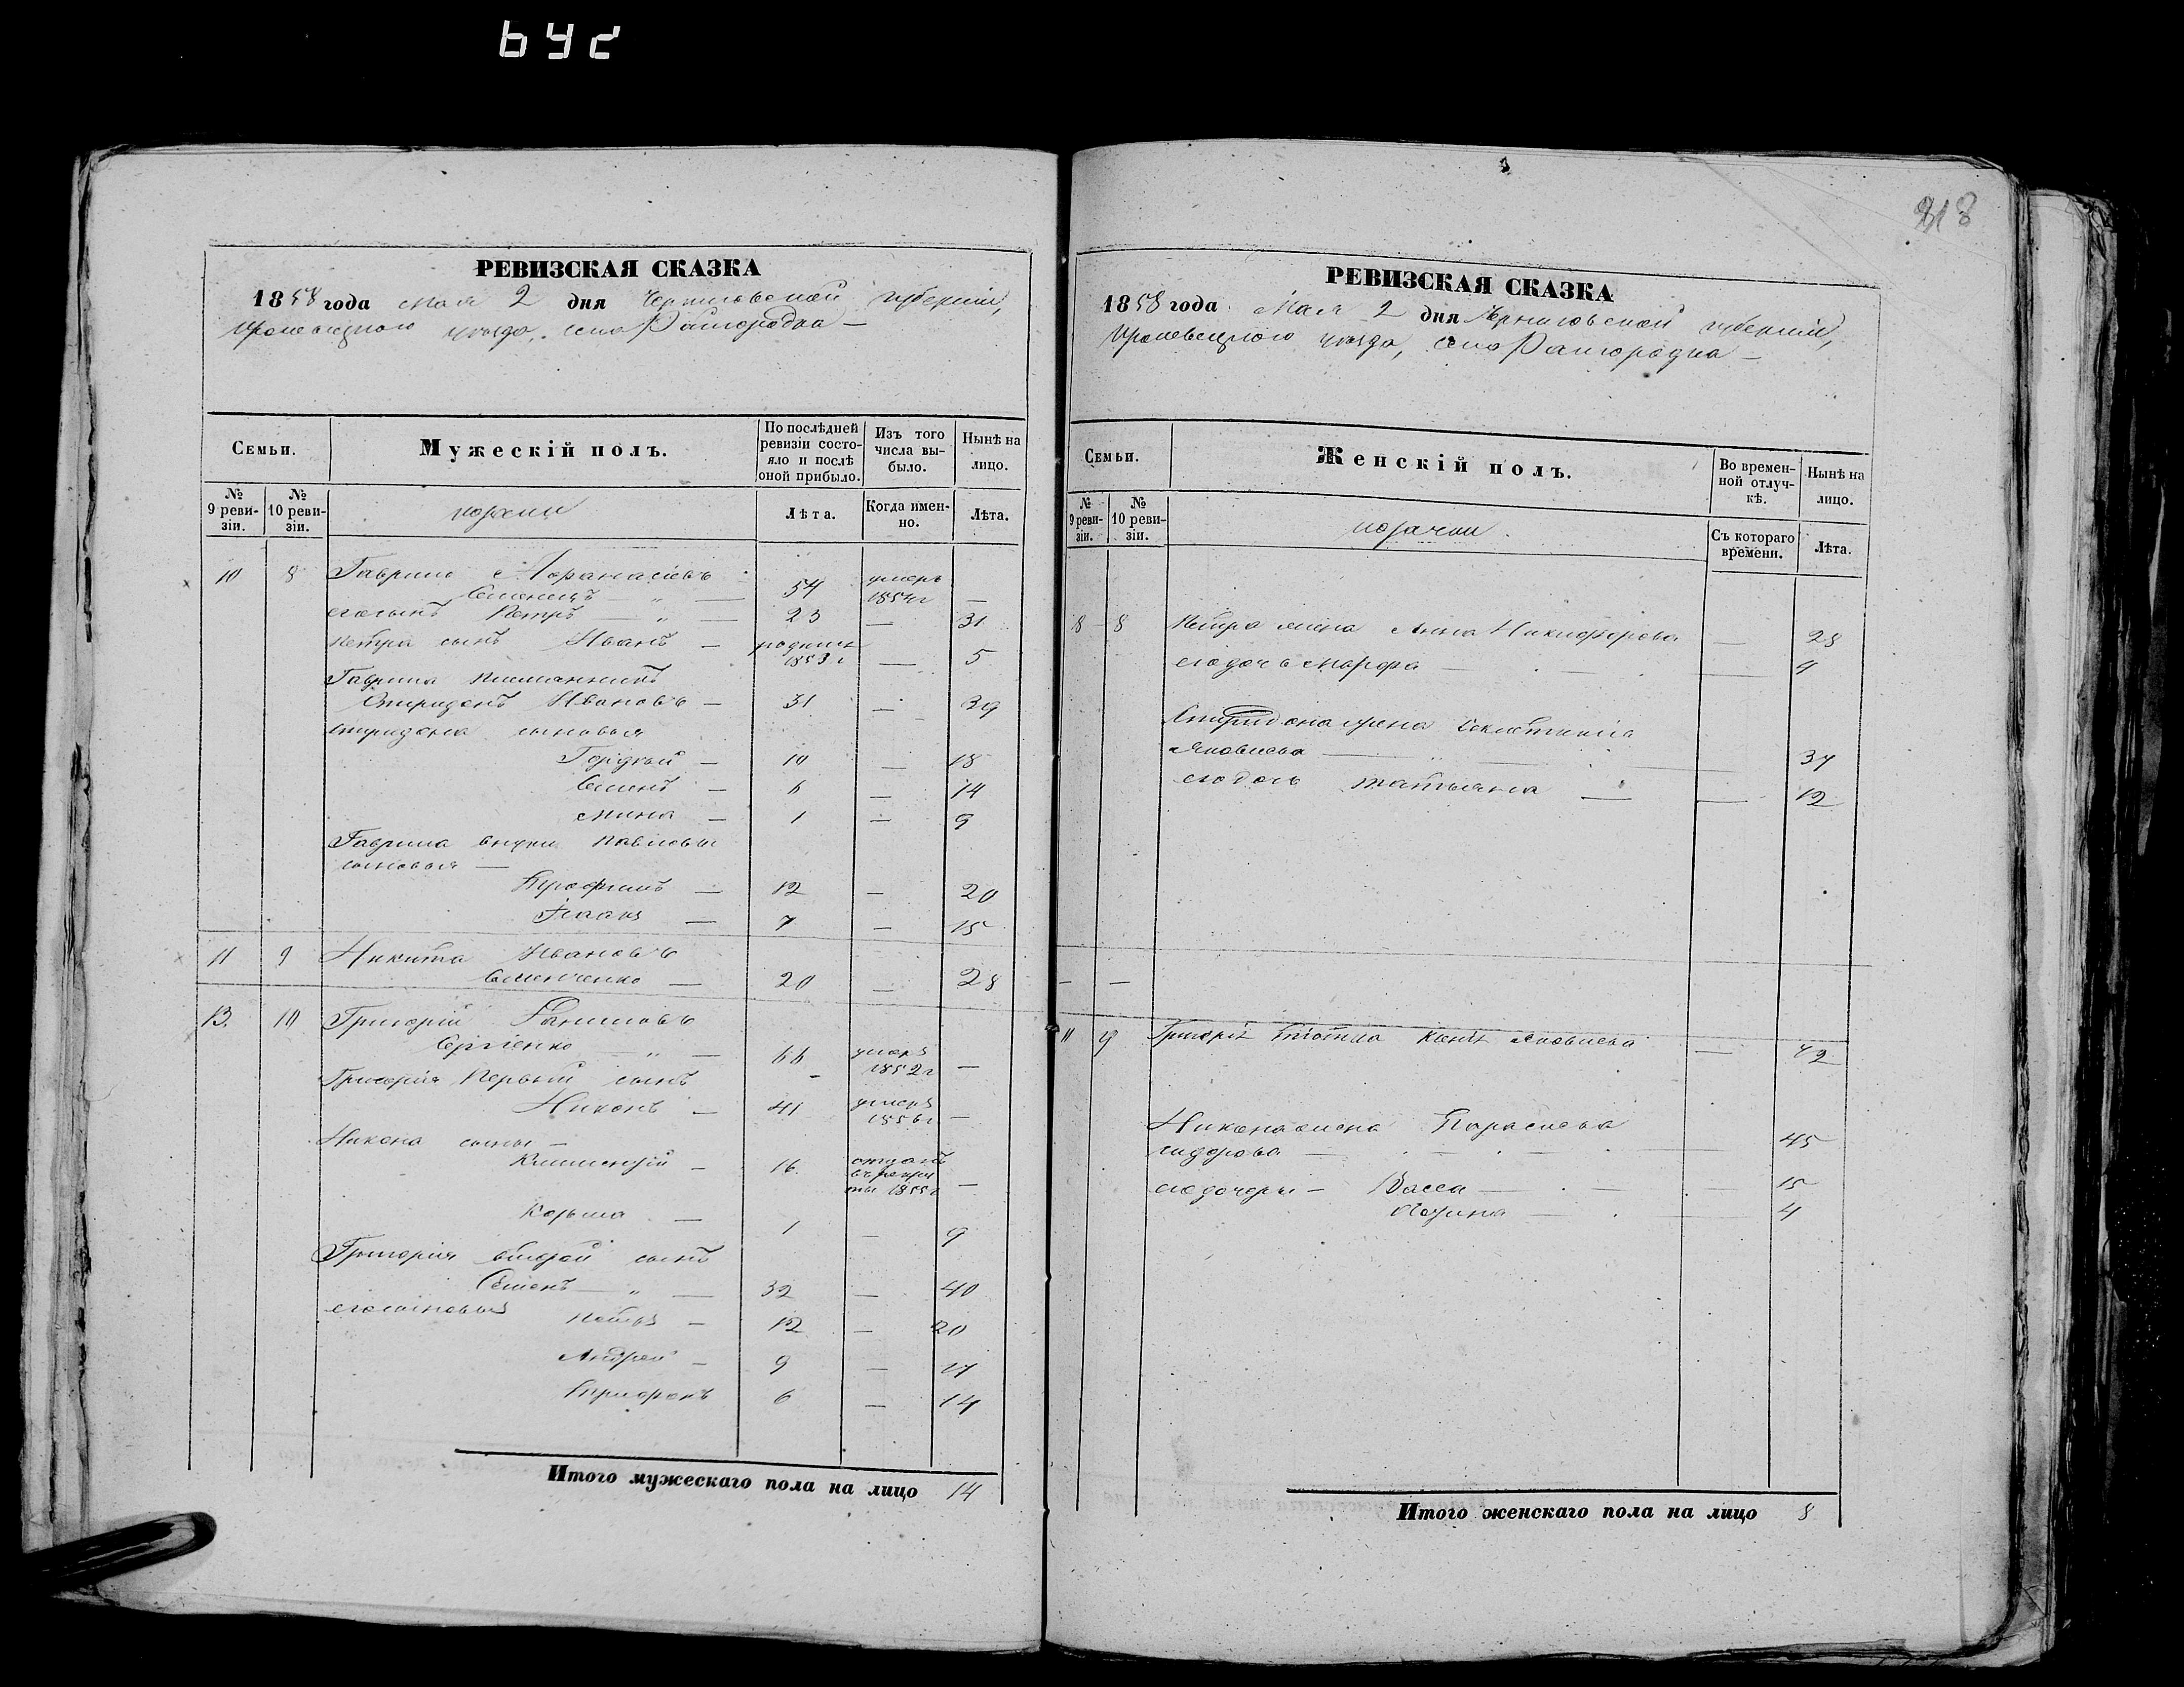 642
218
РЕВИЗСКАЯ СКАЗКА
1858 года Мая 2 дня Черниговской губерніи,
Кролевецкаго уѣзда, села Райгородка —
Семьи.
Мужескій полъ.
По послѣдней ревизіи состояло и послѣ оной прибыло.
Изъ того числа выбыло.
Нынѣ на лицо.
№ 9 ревизіи.
№ 10 ревизіи.
козаки
Лѣта.
Когда именно.
Лѣта.
10 8 Гаврило Афанасіевъ
Семенецъ — " — 54 умеръ 1854 г —
его сынъ Петръ — " — 23 — 31
Петра сынъ Иванъ — родился 1853 г — 5
Гаврила племянникъ
Спиридонъ Ивановъ — 31 — 39
Спиридона сыновья
Гордѣй — 10 — 18
Семенъ — 6 — 14
Мина — 1 — 9
Гаврила внуки Павловы
сыновья —
Трофимъ — 12 — 20
Исакъ — 7 — 15
11 9 Никита Ивановъ
Семенченко — 20 — 28
13. 10 Григорій Даниловъ
Сергіенко — " — 66 умеръ 1852 г —
Григорія Первый сынъ
Никонъ — 41 умеръ 1856 г —
Никона сыны —
Климентій — 16 отданъ въ рекруты 1855 г —
Козьма — 1 — 9
Григорія второй сынъ
Семенъ — " — 32 — 40
его сыновья Петръ — 12 — 20
Андрей — 9 — 17
Трифонъ 6 — 14
Итого мужескаго пола на лицо 14
РЕВИЗСКАЯ СКАЗКА
1858 года Мая 2 дня Черниговской губерніи,
Кролевецкаго уѣзда, села Райгородка —
Семьи.
Женскій полъ.
Во временной отлучкѣ.
Нынѣ на лицо.
№ 9 ревизіи.
№ 10 ревизіи.
козачки
Съ котораго времени.
Лѣта.
8 Петра жена Анна Никифорова — 28
его дочь Марфа — 9
Спиридона жена
Яковлева — 37
его дочь Татьяна — 12
— —
9 Яковлева — 42
Никона жена Параскева
Сидорова — 45
его дочери — Васса — 15
4
Итого женскаго пола на лицо 8